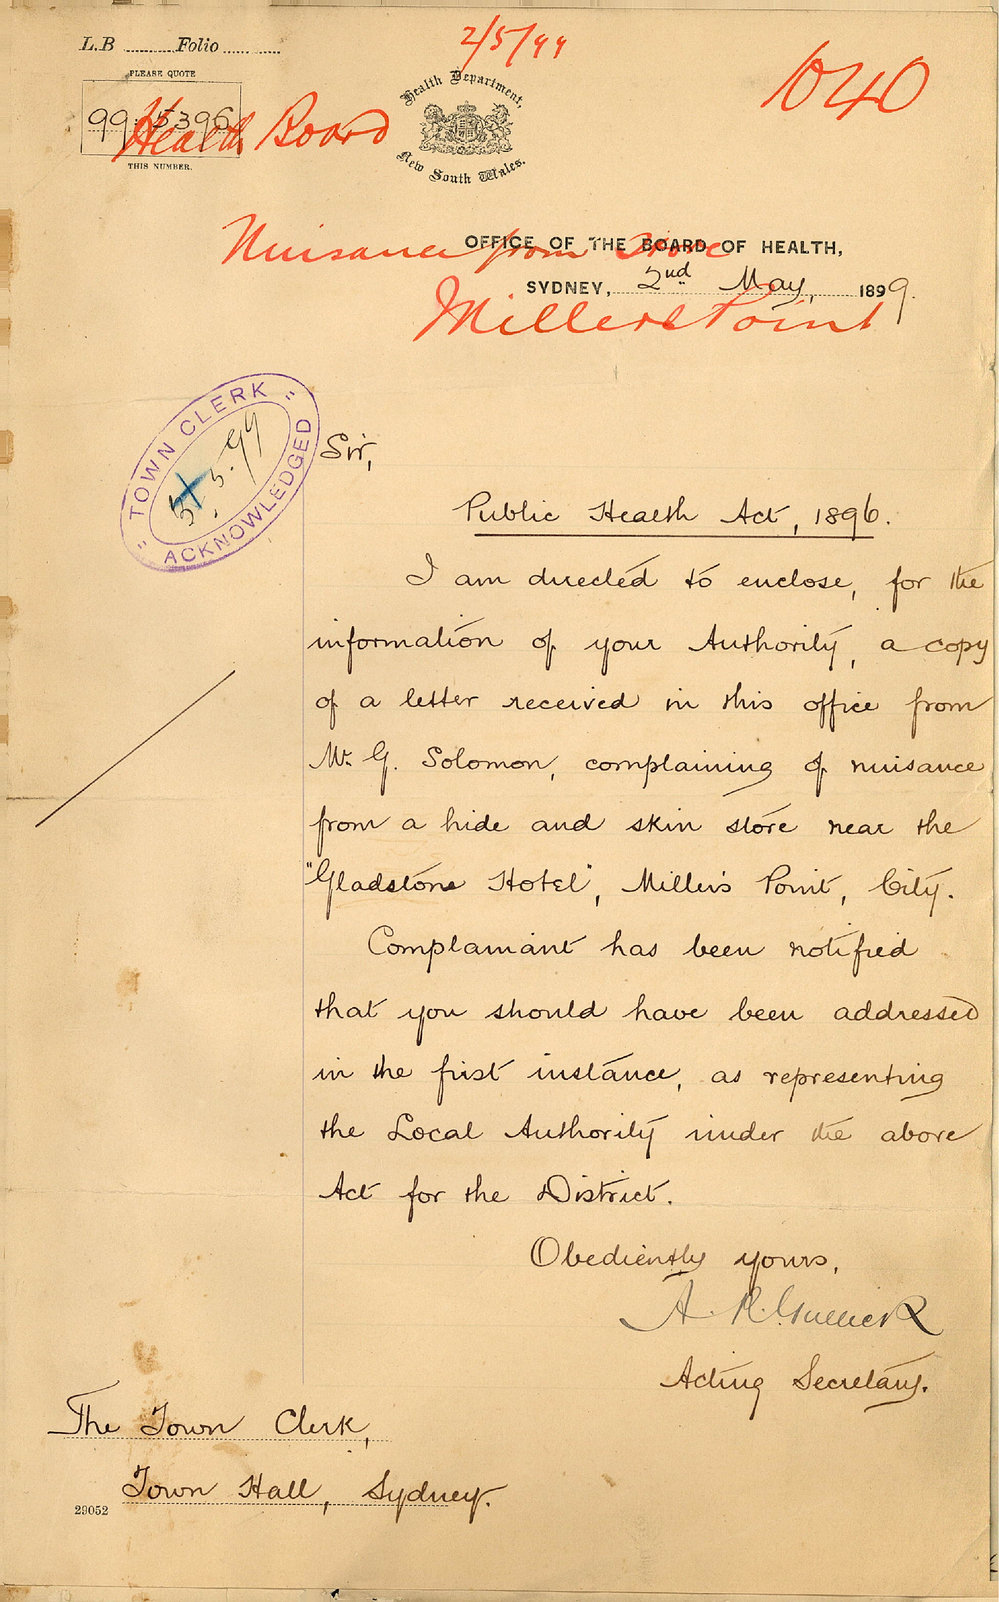 L.B ......... Folio ...... ....
2/5/99
1040
PLEASE QUOTE
99.5396
THIS NUMBER.
Health Board
Health Department,
New South Wales.
OFFICE OF THE BOARD OF HEALTH,
Nuisance from
SYDNEY, 2nd May, 1899.
Millers Point
"TOWN CLERK"
5.99
ACKNOWLEDGED
Sir,
Public Health Act, 1896.
I am directed to enclose, for the
information of your Authority, a copy
of a letter received in this office from
Mr. G. Solomon, complaining of nuisance
from a hide and skin store near the
"Gladstone Hotel", Miller's Point, City.
Complainant has been notified
that you should have been addressed
in the first instance, as representing
the Local Authority under the above
Act for the District.
Obediently yours,
Acting Secretary.
The Town Clerk,
Town Hall, Sydney.
29052